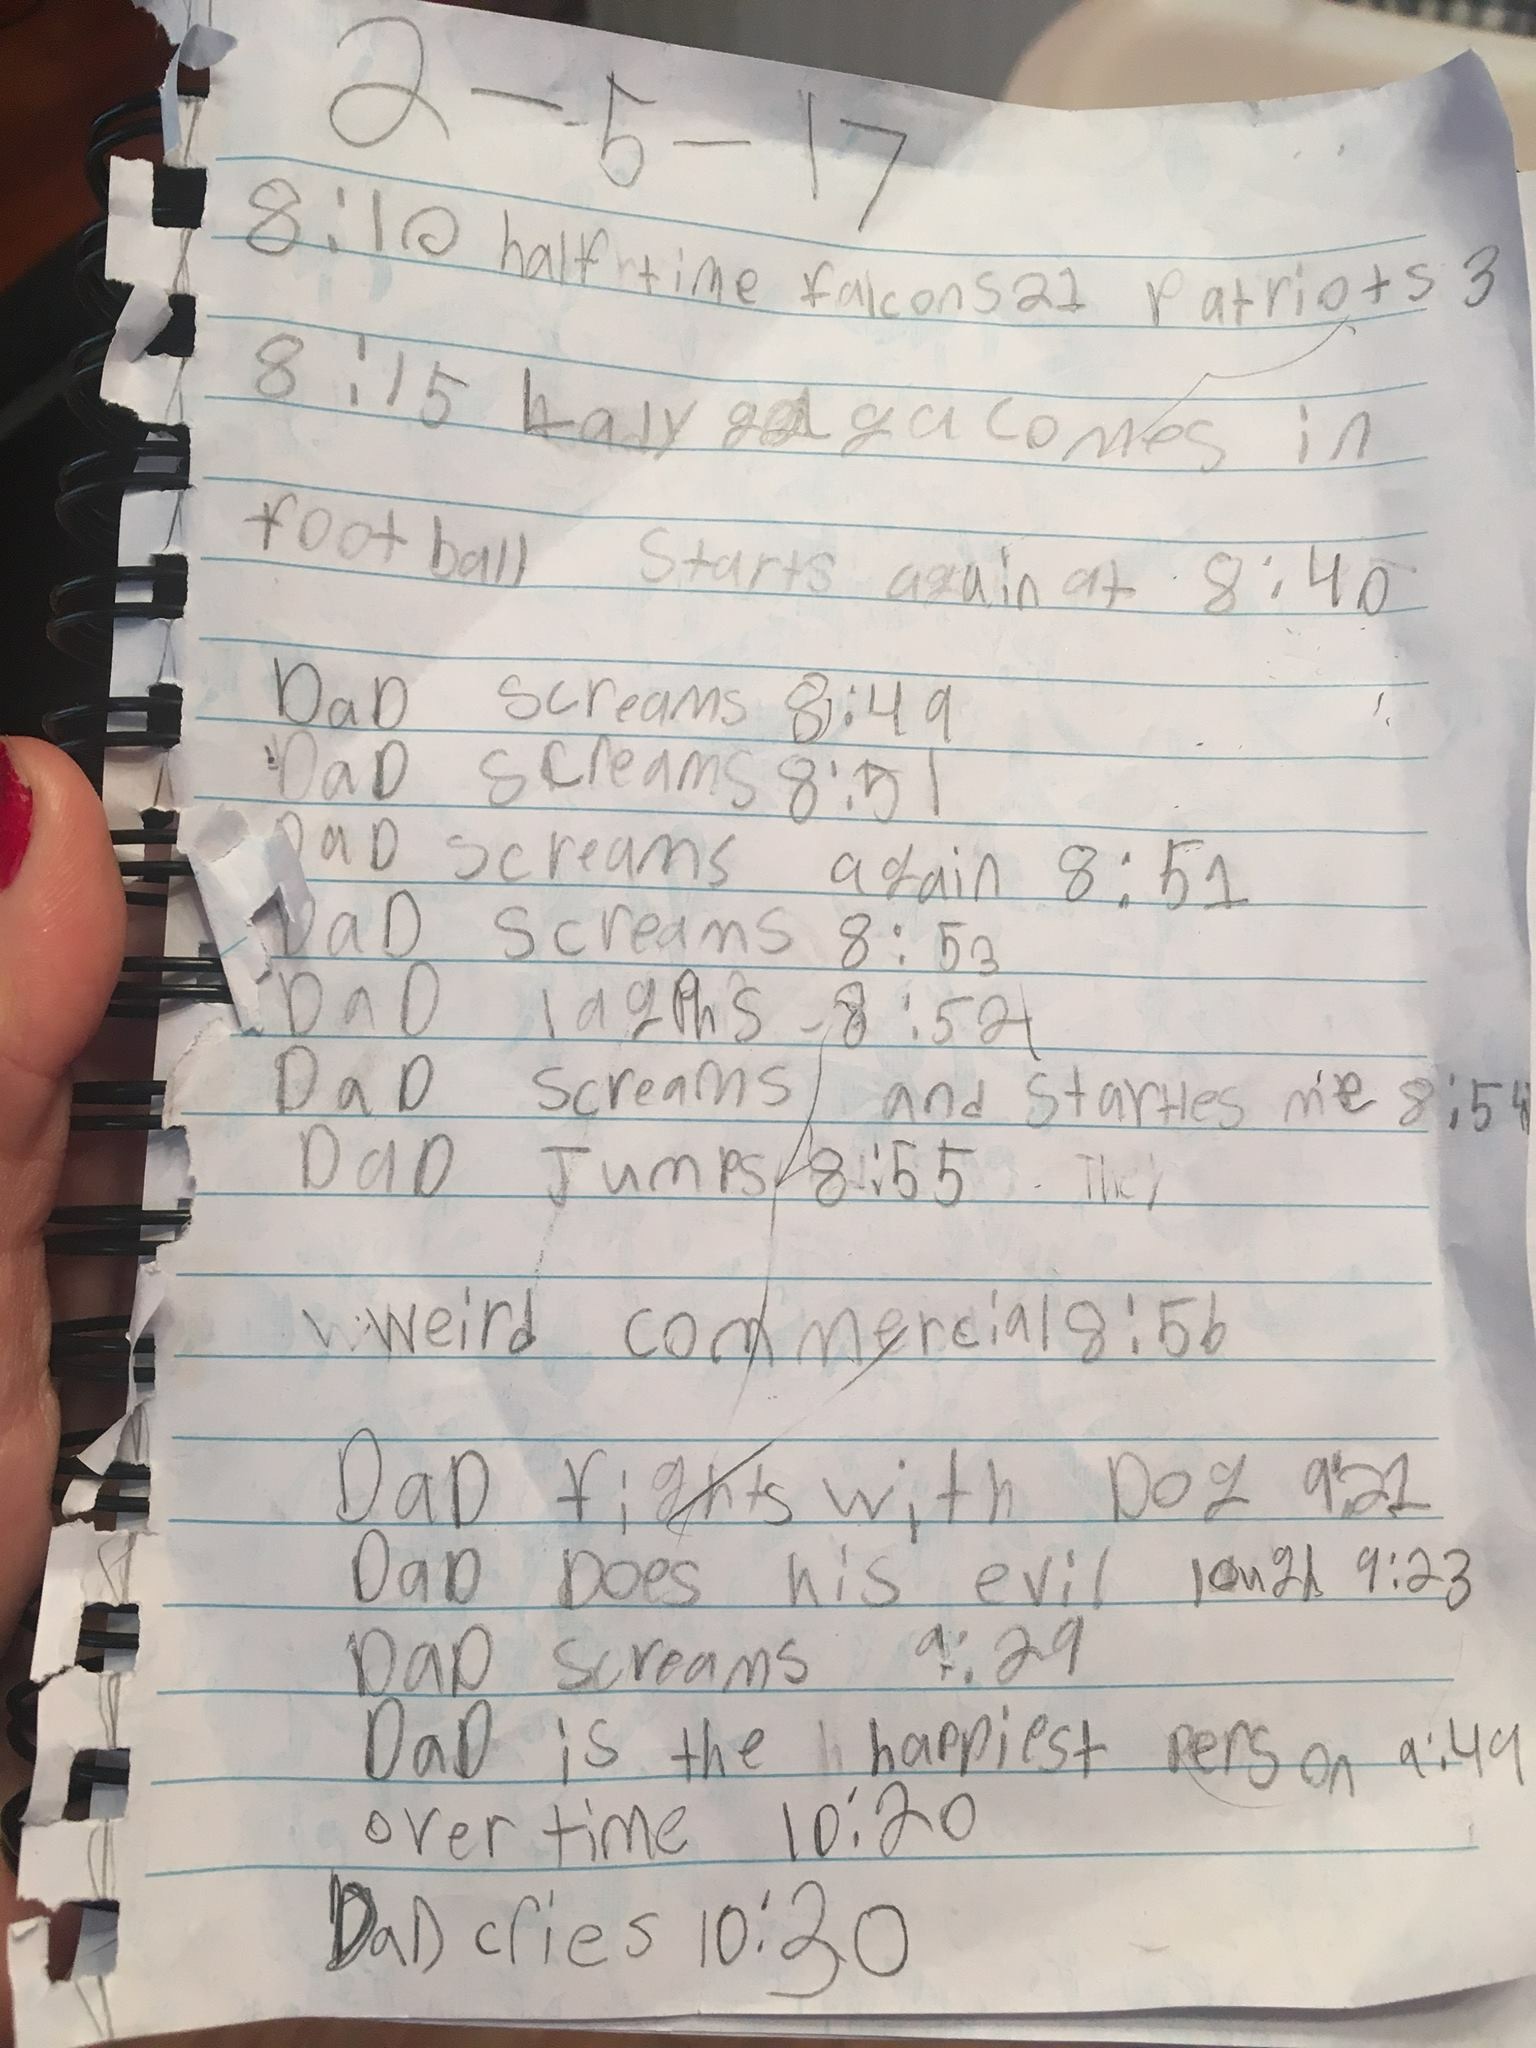 2-5-17
8:10 halfrtime falcons 21 Patriots 3
8:15 Lady gaga comes in
football starts again at 8:40
DaD screams 8:49
DaD screams 8:51
DaD screams again 8:51
DaD screams 8:53
DaD laghhs 8:54
DaD screams and startles me 8:54
DaD Jumps 8:55 They
weird commercial 8:56
DaD fights with Dog 9:21
DaD Does his evil laugh 9:23
DaD screams 9:29
DaD is the happiest person 9:49
over time 10:20
DaD cries 10:30